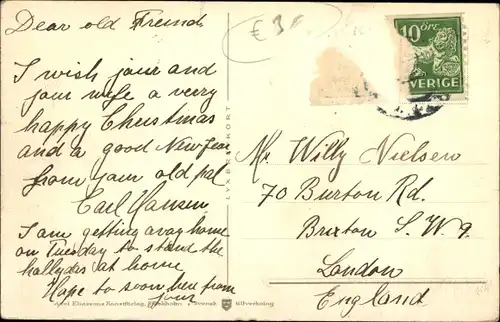 Dear old Freind
I wish jour and
jour wife a verry
happy Christmas
and a good New Jear
from your old pal
Earl Hansen
I am getting avay home
on Tuesday to stand the
hallydas at home
Hope to soon hear from
jour
€ 3
10 ÖRE
SVERIGE
LYXBREVKORT
Mr. Willy Nielsen
70 Burton Rd.
Brixton S.W.9.
London
England
Axel Eliassons Konstförlag, Stockholm Svensk tillverkning